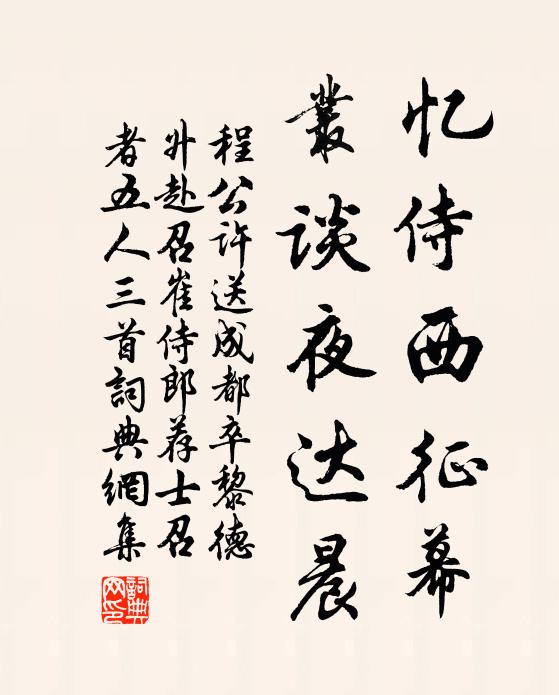 忆侍西征幕
叢谈夜达晨
程公许送成都卒黎德
升赴召崔侍郎荐士召
者五人三首詞典網集
詞典網印